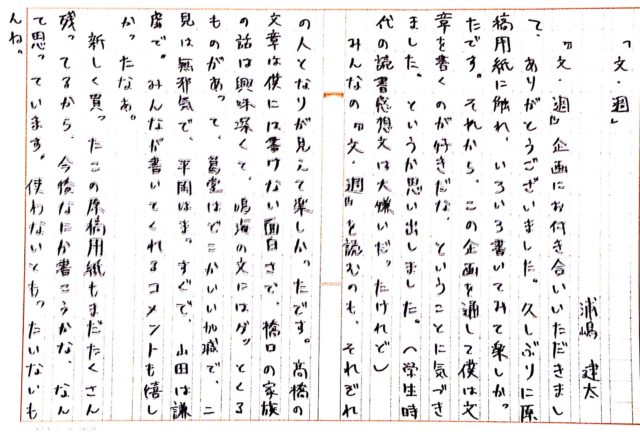 「文・週」
浦嶋 建太
『文・週』企画にお付き合いいただきまし
て、ありがとうございました。久しぶりに原
稿用紙に触れ、いろいろ書いてみて楽しかっ
たです。それから、この企画を通して僕は文
章を書くのが好きだな、ということに気づき
ました。というか思い出しました。(学生時
代の読書感想文は大嫌いだったけれど)
みんなの『文・週』を読むのも、それぞれ
の人となりが見えて楽しかったです。高橋の
文章は僕には書けない面白さで、橋口の家族
の話は興味深くて、鳴海の文にはグッとくる
ものがあって、葛堂はでこかいい加減で、二
見は無邪気で、平岡はまっすぐで、山田は謙
虚で。みんなが書いてくれるコメントも嬉し
かったなぁ。
新しく買ったこの原稿用紙もまだたくさん
残ってるから、今後なにか書こうかな、なん
て思っています。使わないともったいないも
んね。